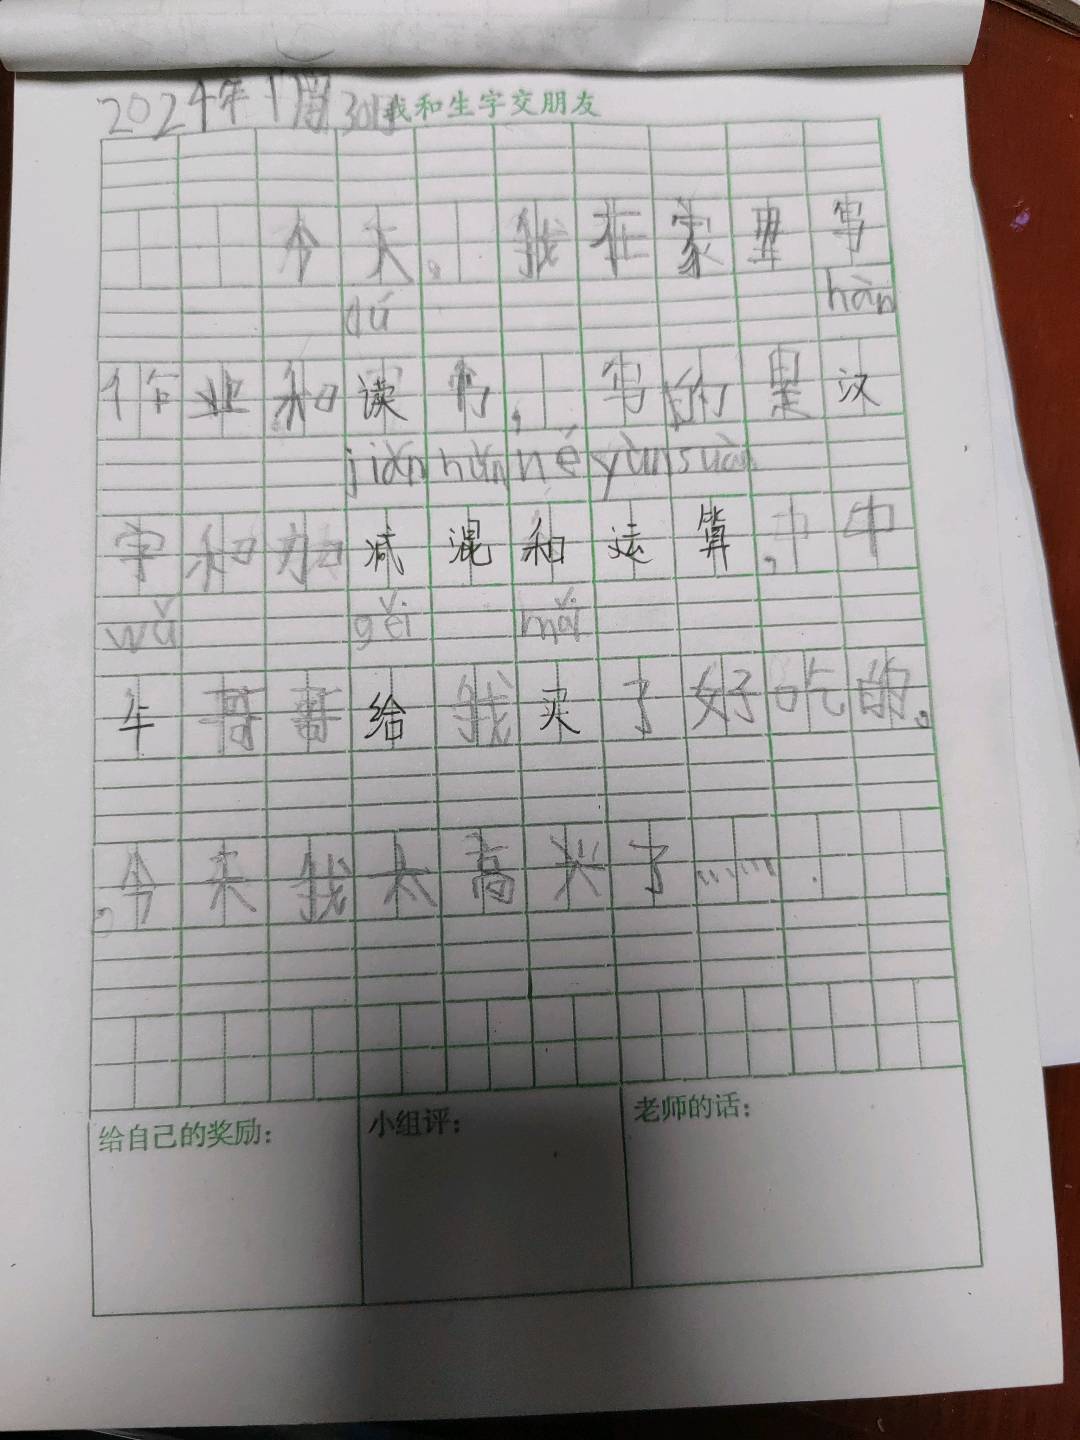 2024年11月30日我和生字交朋友
今天。我在家里写
dú hàn
作业和读书,写的是汉
jiǎn hùn hé yùn suàn
字和加减混和运算,中中
wǔ gěi mǎi
午哥哥给我买了好吃的。
,今天我太高兴了……
给自己的奖励:
小组评:
老师的话: